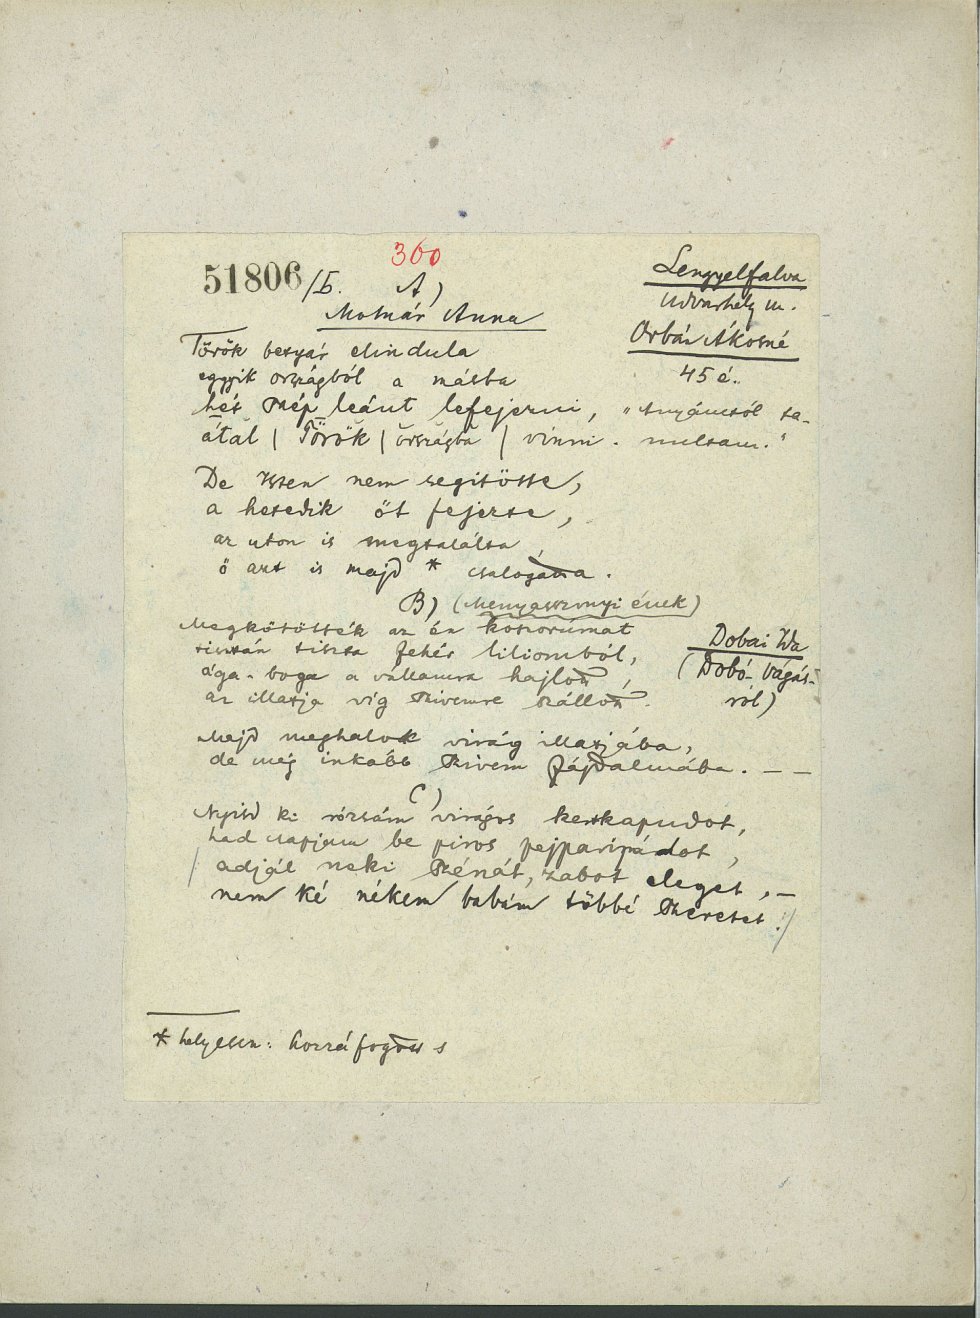 51806/b. 360
A)
Lengyelfalva
Udvarhely m.
Orbán Ákosné
45 é.
Molnár Anna
Török betyár elindula
egyik országból a másba
hét szép leánt lefejezni,
átal | Török | országba | vinni.
"Anyámtól ta-
nultam."
De Isten nem segitötte,
a hetedik őt fejezte,
az uton is megtalálta
ő azt is majd * csalogatta.
B) (Menyasszonyi ének)
Dobai Ida
(Dobó-Vágás-
ról)
Megkötötték az én koszorúmat
tisztán tiszta fehér liliomból,
ága-boga a vállamra hajlott,
az illatja víg szivemre szállott.
Majd meghalok virág illatjába,
de még inkább szivem fájdalmába. — —
C)
Nyisd ki rózsám virágos kertkapudot,
had csapjam be piros pejparipádot,
/ adjál neki szénát, zabot eleget, —
nem ké nékem babám többé szeretet :/
* helyesen: hozzáfogott s